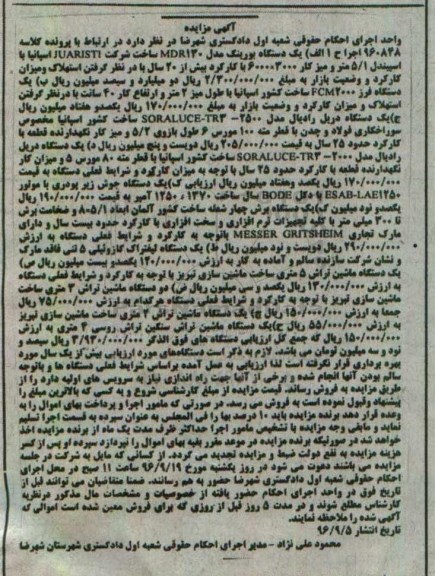 آگهی مزایده
واحد اجرای احکام حقوقی شعبه اول دادگستری شهرضا در نظر دارد در ارتباط با پرونده کلاسه
۹۶۰۸۴۸ اجرا ح ۱ الف) یک دستگاه بورینگ مدل MDR۱۳۰ ساخت شرکت JUARISTI اسپانیا با
اسپیندل ۵/۱ متر و میز کار ۳۰۰۰×۶۰۰۰ با کارکرد بیش از ۲۰ سال با در نظر گرفتن استهلاک ومیزان
کارکرد و وضعیت بازار به مبلغ ۲/۳۰۰/۰۰۰/۰۰۰ ریال دو میلیارد و سیصد میلیون ریال ب) یک
دستگاه فرز FCM۲۰۰۰ ساخت کشور اسپانیا با طول میز ۲ متر و ارتفاع کار ۴۰ سانت با درنظر گرفتن
استهلاک و میزان کارکرد و وضعیت بازار به مبلغ ۱۷۰/۰۰۰/۰۰۰ ریال یکصدو هفتاد میلیون ریال
ج)یک دستگاه دریل رادیال مدل SORALUCE-TR۳ -۲۵۰۰ ساخت کشور اسپانیا مخصوص
سوراخکاری فولاد و چدن با قطر مته ۱۰۰ مورس ۶ طول بازوی ۵/۲ و میز کار نگهدارنده قطعه با
کارکرد حدود ۲۵ سال به قیمت ۲۰۵/۰۰۰/۰۰۰ ریال دویست و پنج میلیون ریال د) یک دستگاه دریل
رادیال مدل SORALUCE-TR۳ -۲۰۰۰ ساخت کشور اسپانیا با قطر مته ۸۰ مورس ۵ و میزان کار
نگهدارنده قطعه با کارکرد حدود ۲۵ سال با توجه به میزان کارکرد و شرایط فعلی دستگاه به قیمت
۱۷۰/۰۰۰/۰۰۰ ریال یکصد وهفتاد میلیون ریال ارزیابی ک)یک دستگاه جوش زیر پودری با موتور
ESAB-LAE۱۲۵۰ با دکل BODE سال ساخت ۱۳۷۰ ، ۱۲۵۰ آمپر به قیمت ۱۹۰/۰۰۰/۰۰۰ ریال
یکصدو نود میلیون ک)یک دستگاه برش چهار شعله ساخت کشور آلمان ابعاد ۸۰۵/۱ و ضخامت برش
تا ۳۰۰ میلی متر با کلیه تجهیزات نرم افزاری و سخت افزاری با کارکرد حدود بیست سال و دارای
مارک تجاری MESSER GRITSHEIM باتوجه به کارکرد و شرایط فعلی دستگاه به ارزش
۲۹۰/۰۰۰/۰۰۰ ریال دویست و نود میلیون ریال ط) یک دستگاه لیفتراک گازوئیلی ۵ تنی فاقد مارک
و نشان شرکت سازنده سالم و آماده به کار به ارزش ۱۲۰/۰۰۰/۰۰۰ یکصدو بیست میلیون ریال ص)
یک دستگاه ماشین تراش ۵ متری ساخت ماشین سازی تبریز با توجه به کارکرد و شرایط فعلی دستگاه
به ارزش ۱۳۰/۰۰۰/۰۰۰ ریال یکصد و سی میلیون ریال ض) دو دستگاه ماشین تراش ۳ متری ساخت
ماشین سازی تبریز با توجه به کارکرد و شرایط فعلی دستگاه هرکدام به ارزش ۷۵/۰۰۰/۰۰۰ ریال
جمعا به ارزش ۱۵۰/۰۰۰/۰۰۰ ریال ج) یک دستگاه ماشین تراش ۲ متری ساخت ماشین سازی تبریز
به ارزش ۵۵/۰۰۰/۰۰۰ ریال ح)یک دستگاه ماشین تراش سنگین تراش روسی ۴ متری به ارزش
۱۵۰/۰۰۰/۰۰۰ ریال که جمع کل ارزیابی دستگاه های فوق الذکر ۳/۹۳۰/۰۰۰/۰۰۰ ریال سیصد و
نود و سه میلیون تومان می باشد. لازم به ذکر است دستگاه‌های مورد ارزیابی بیش از یک سال مورد
بهره برداری قرار نگرفته است لذا ارزیابی به عمل آمده براساس شرایط فعلی دستگاه ها و باتوجه
سالم بودن آنها انجام شده و برخی از آنها جهت راه اندازی نیاز به سرویس های اولیه دارد را از
طریق مزایده به فروش رساند، قیمت مزایده از مبلغ کارشناسی شروع و به کسی که بالاترین مبلغ را
پیشنهاد وقبول نموده است به فروش می رسد، در صورتی که مامور اجرا و پرداخت بهای اموال را به
وعده قرار دهد برنده مزایده باید ۱۰ درصد بها را فی المجلس به عنوان سپرده به قسمت اجرا تسلیم
نماید و مابقی وجه مزایده با تشخیص مامور اجرا حداکثر ظرف مدت یک ماه از برنده مزایده اخذ
خواهد شد در صورتیکه برنده مزایده در موعد مقرر بقیه بهای اموال را نپردازد سپرده او پس از کسر
هزینه مزایده به نفع دولت ضبط و مزایده تجدید می گردد. از کسانی که مایل به شرکت در جلسه
مزایده می باشند دعوت می شود در روز یکشنبه مورخ ۹۶/۹/۱۹ ساعت ۱۱ صبح در محل اجرای
احکام حقوقی شعبه اول دادگستری شهرضا حضور به هم رسانند. ضمنا متقاضیان می توانند قبل از
تاریخ فوق در واحد اجرای احکام حضور یافته از خصوصیات و مشخصات مال مذکور درنظریه
کارشناس مطلع شوند و در مدت ۵ روز قبل از روزی که برای فروش معین شده است اموالی که
آگهی شده را ملاحظه نمایند.
تاریخ انتشار ۹۶/۹/۵
محمود علی نژاد - مدیر اجرای احکام حقوقی شعبه اول دادگستری شهرستان شهرضا